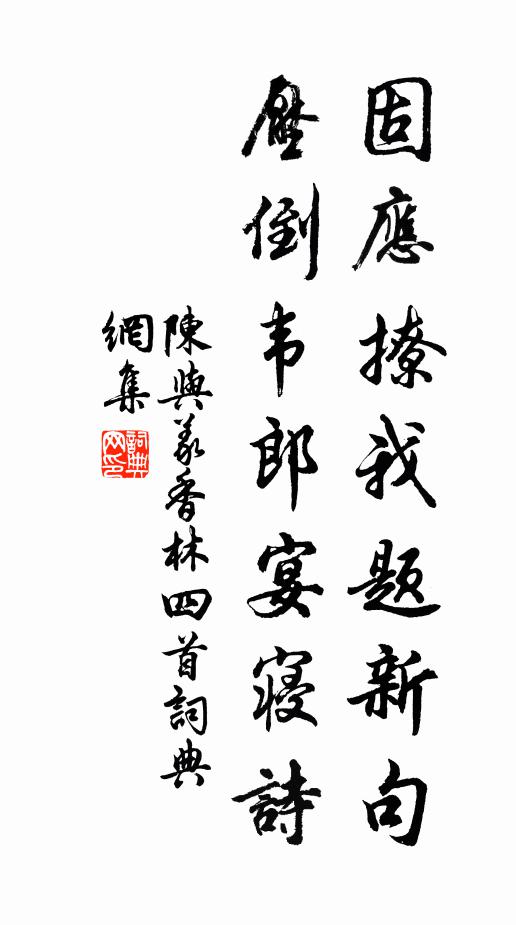 固應撩我題新句
壓倒韦郎宴寝詩
陳與義香林四首詞典
網集
詞典網印